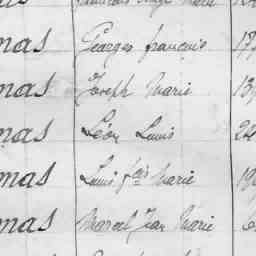 mas Georges françois 17
mas Joseph Marie 13
mas Léon Louis 24
mas Louis fois Marie 19
mas Marcel Jean Marie 6